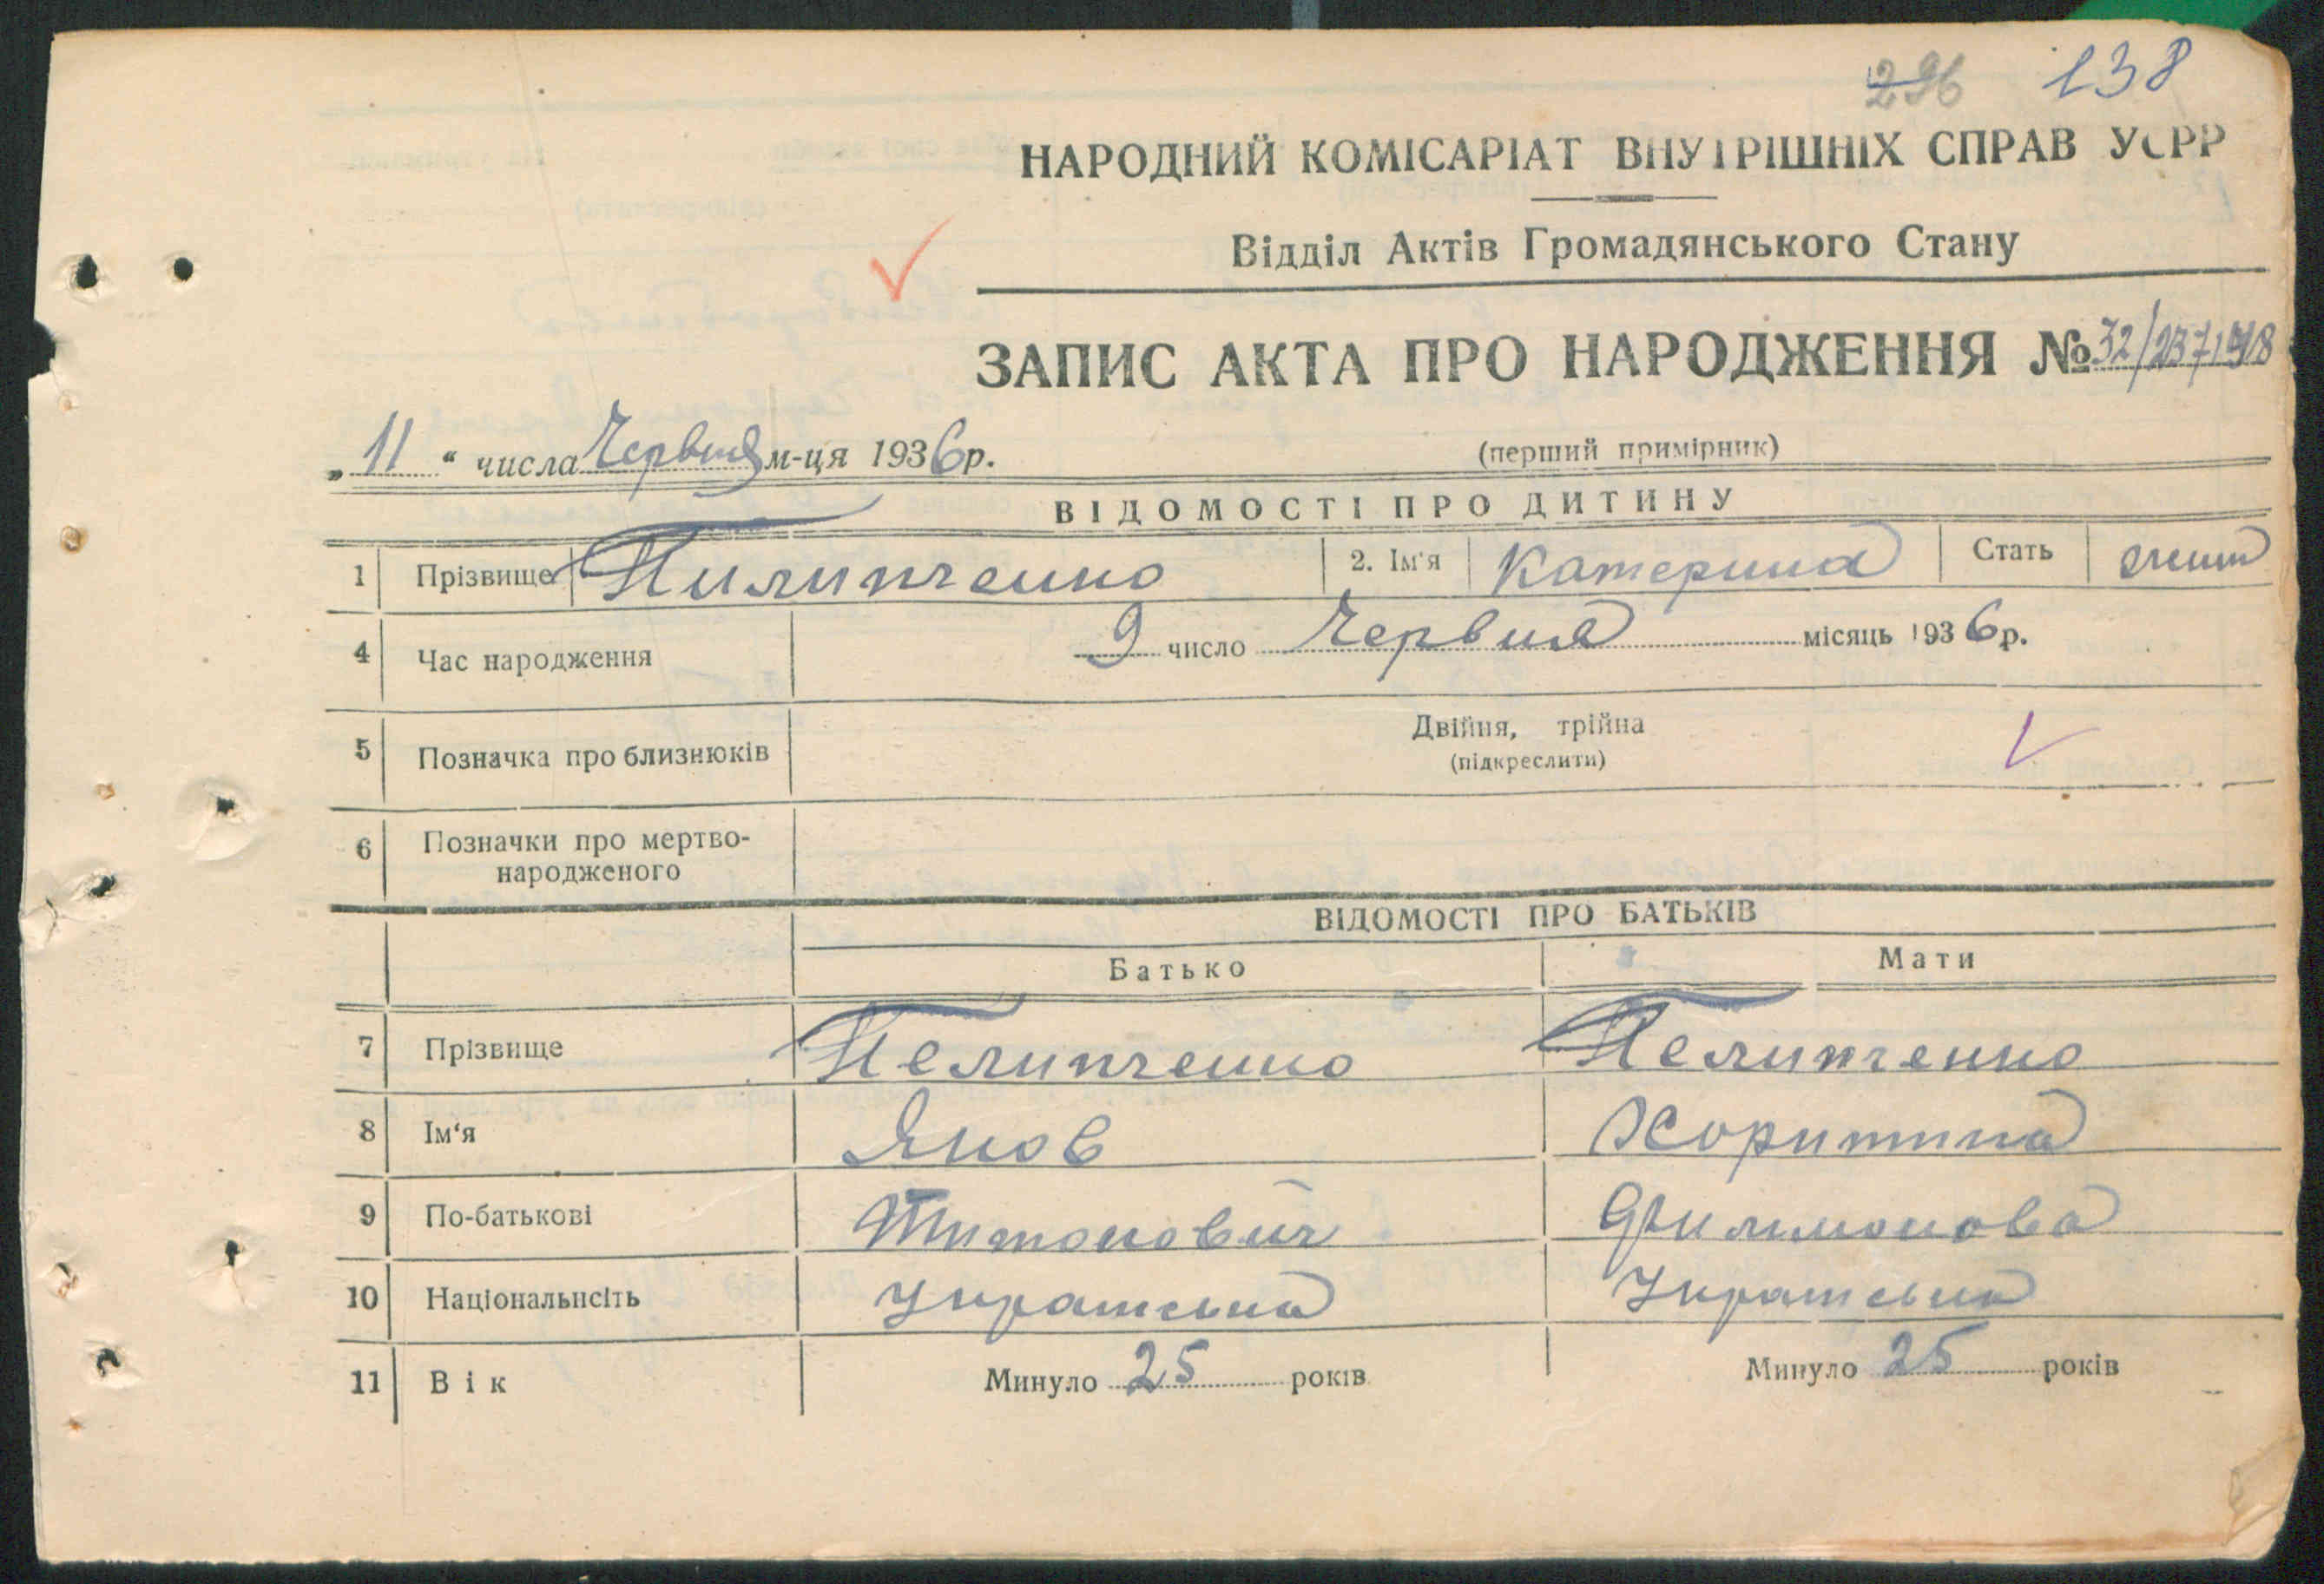 296 138
НАРОДНИЙ КОМІСАРІАТ ВНУТРІШНІХ СПРАВ УСРР
Відділ Актів Громадянського Стану
ЗАПИС АКТА ПРО НАРОДЖЕННЯ № 32/
„11“ числа Червня м-ця 1936 р.
(перший примірник)
ВІДОМОСТІ ПРО ДИТИНУ
1 Прізвище Пилипченко 2. Ім'я Катерина Стать жіноч
4 Час народження 9 число Червня місяць 1936 р.
5 Позначка про близнюків Двійня, трійна
(підкреслити)
6 Позначки про мертво-
народженого
ВІДОМОСТІ ПРО БАТЬКІВ
Батько Мати
7 Прізвище Пелипченко Пелипченко
8 Ім'я Яков Хоритина
9 По-батькові Титонович Филимонова
10 Національнсіть Украінська Украінська
11 Вік Минуло 25 років Минуло 25 років